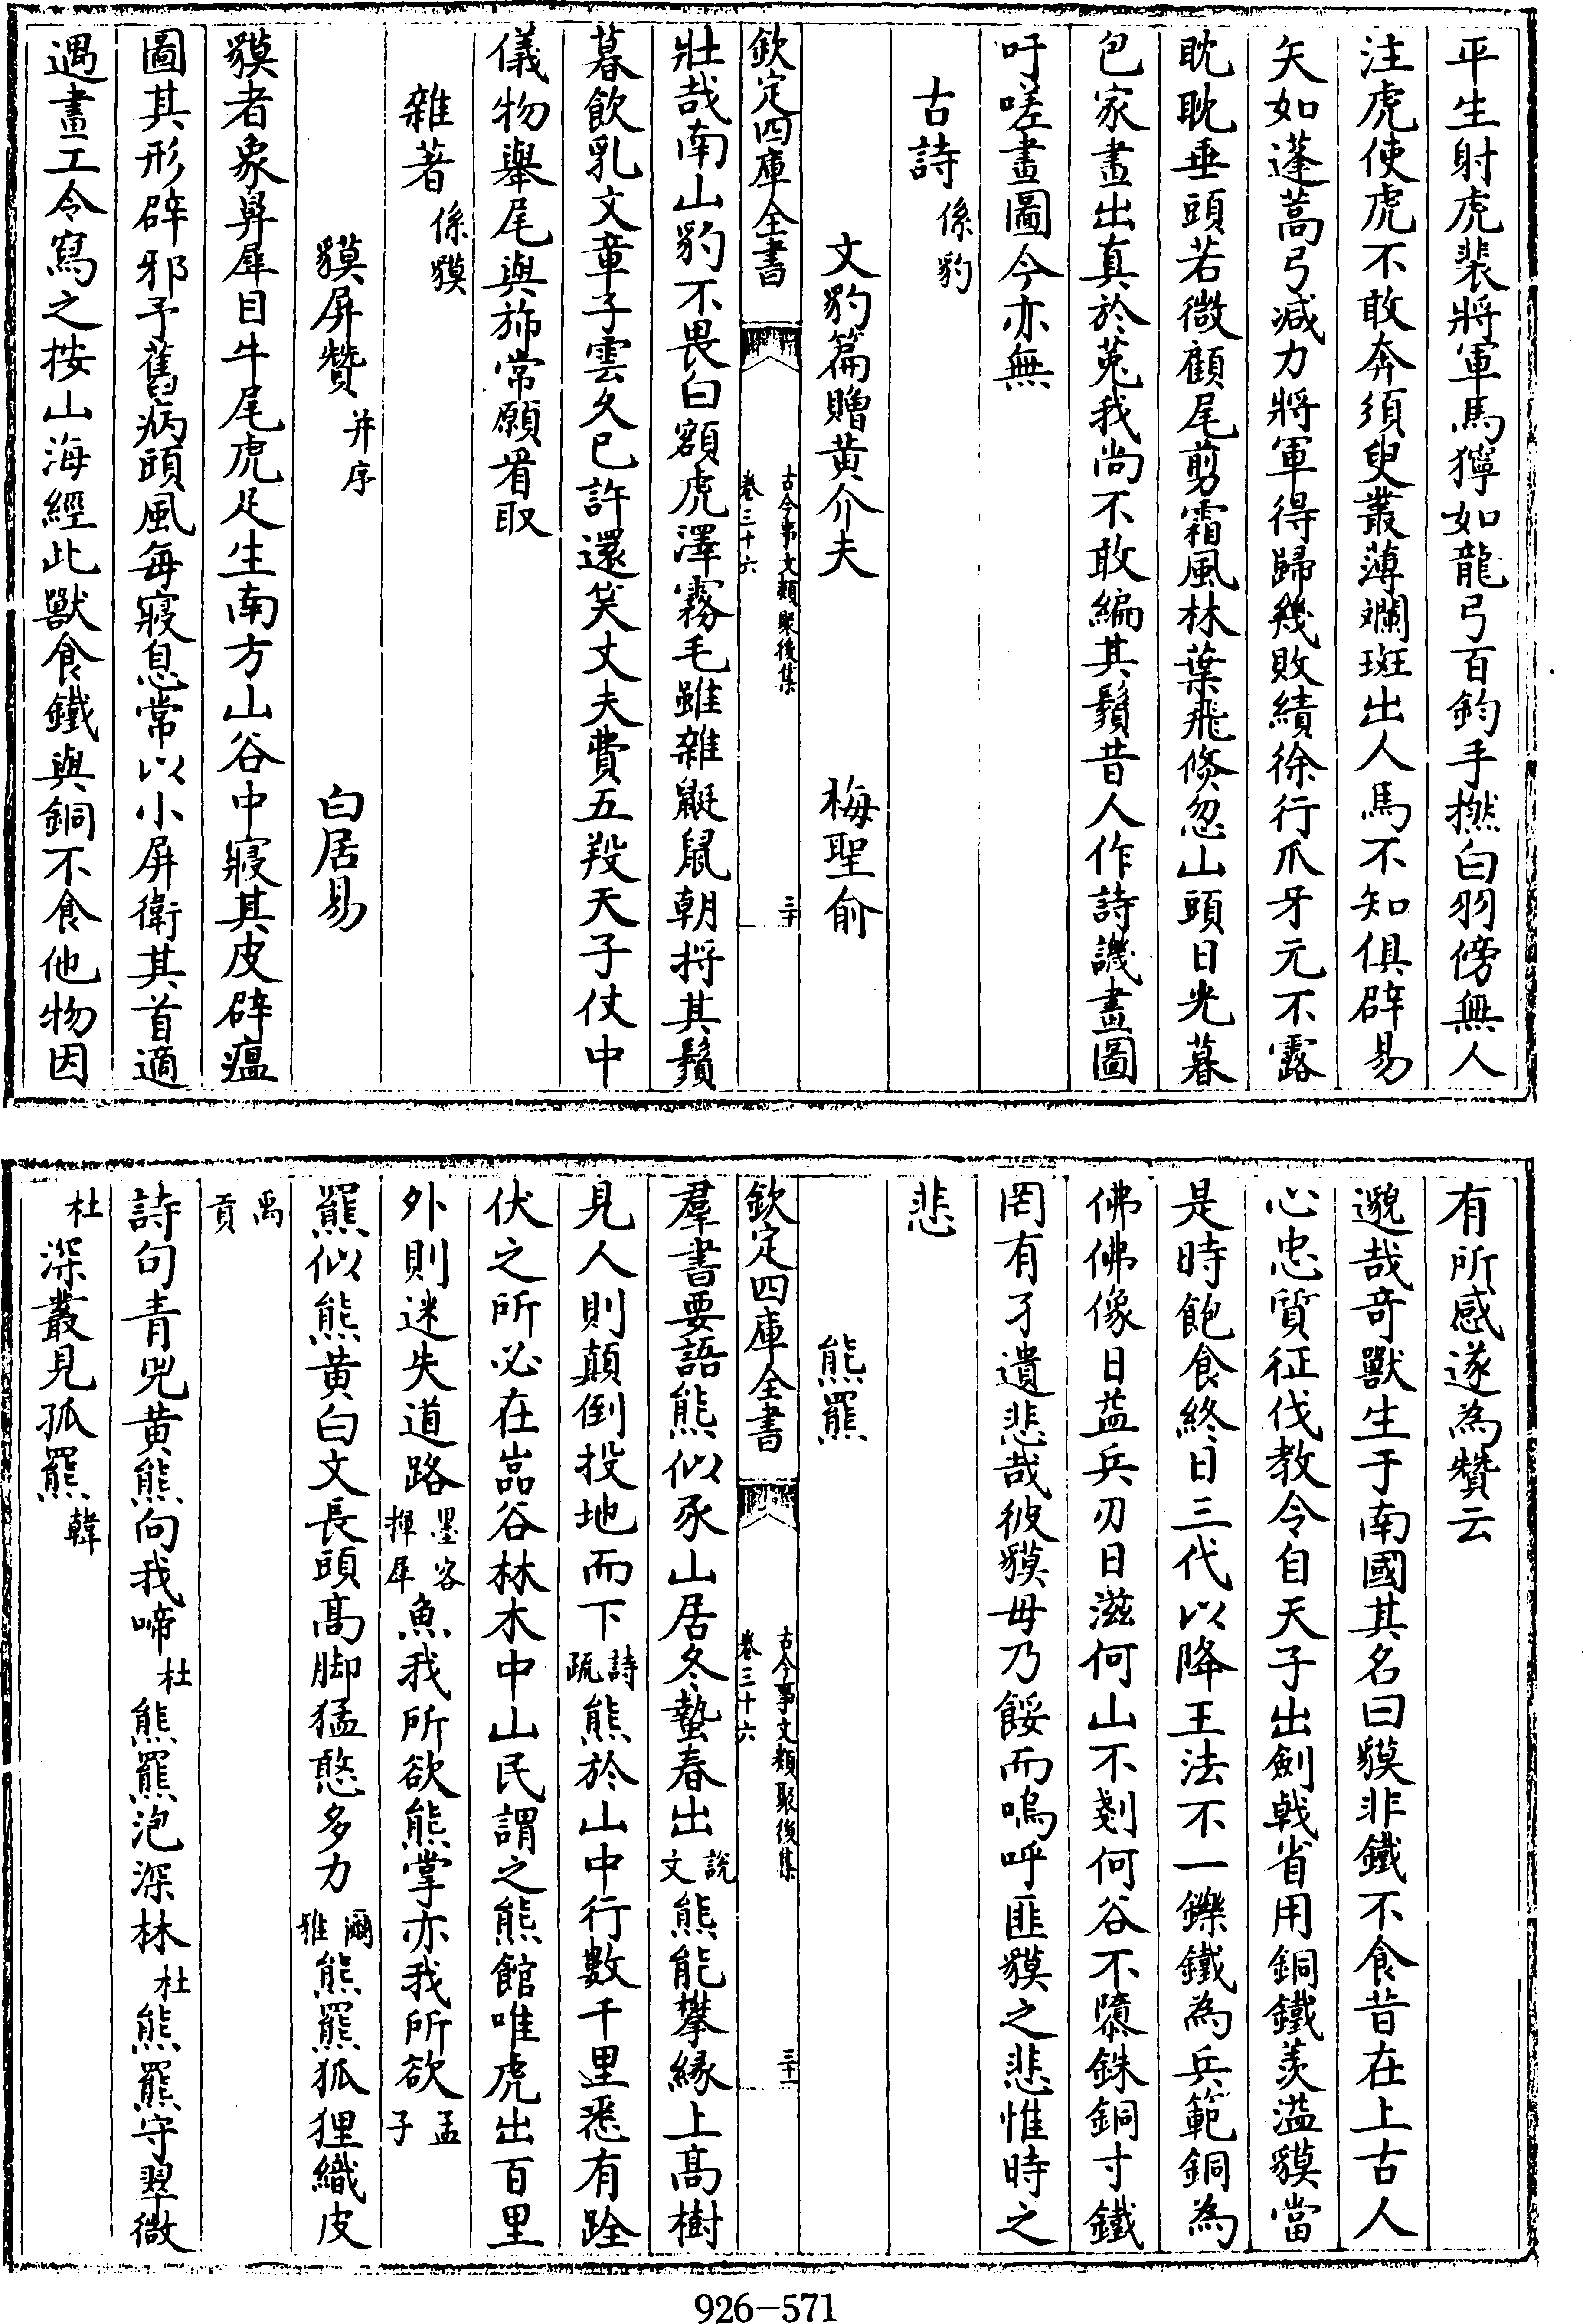 平生射虎裴將軍馬獰如龍弓百鈞手撚白羽傍無人
注虎使虎不敢奔須臾叢薄斕斑出人馬不知俱辟易
矢如蓬蒿弓減力將軍得歸幾敗績徐行爪牙元不露
眈眈垂頭若微顧尾剪霜風林葉飛倏忽山頭日光暮
包家畫出真於菟我尚不敢編其鬚昔人作詩譏畫圖
吁嗟畫圖今亦無
古詩係豹
文豹篇贈黄介夫 梅聖俞
欽定四庫全書 古今事文類聚後集 卷三十六 三十
壯哉南山豹不畏白額虎澤霧毛雖雜鼮鼠朝捋其鬚
暮飲乳文章子雲久已許還笑丈夫費五羖天子仗中
儀物舉尾與旆常願看取
雜著係貘
貘屏贊并序 白居易
貘者象鼻犀目牛尾虎足生南方山谷中寢其皮辟瘟
圖其形辟邪予舊病頭風每寢息常以小屏衛其首適
遇畫工令寫之按山海經此獸食鐵與銅不食他物因
有所感遂為贊云
邈哉竒獸生于南國其名曰貘非鐵不食昔在上古人
心忠質征伐教令自天子出劍戟省用銅鐵羨溢貘當
是時飽食終日三代以降王法不一鑠鐵為兵範銅為
佛佛像日益兵刃日滋何山不剗何谷不隳銖銅寸鐵
罔有孑遺悲哉彼貘毋乃餒而嗚呼匪貘之悲惟時之
悲
熊羆
欽定四庫全書 古今事文類聚後集 卷三十六 三十一
羣書要語熊似豕山居冬蟄春出説文熊能攀緣上高樹
見人則顛倒投地而下詩疏熊於山中行數千里悉有跧
伏之所必在嵓谷林木中山民謂之熊館唯虎出百里
外則迷失道路墨客揮犀魚我所欲熊掌亦我所欲孟子
羆似熊黄白文長頭高脚猛憨多力爾雅熊羆狐狸織皮
禹貢
詩句青兕黄熊向我啼杜熊羆泡深林杜熊羆守翠微
杜深叢見孤羆韓
926-571